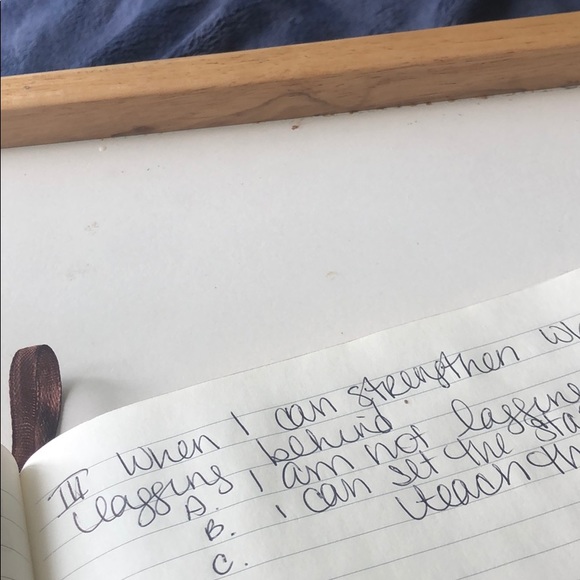 III When I can strengthen
lagging behind.
A. I am not lagging
B. I can set the
teach
C.